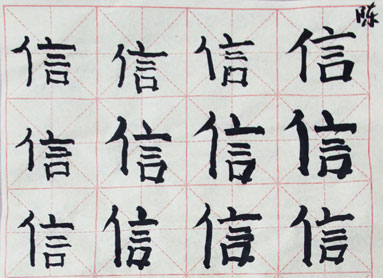 陈
信信信信
信信信信
信信信信